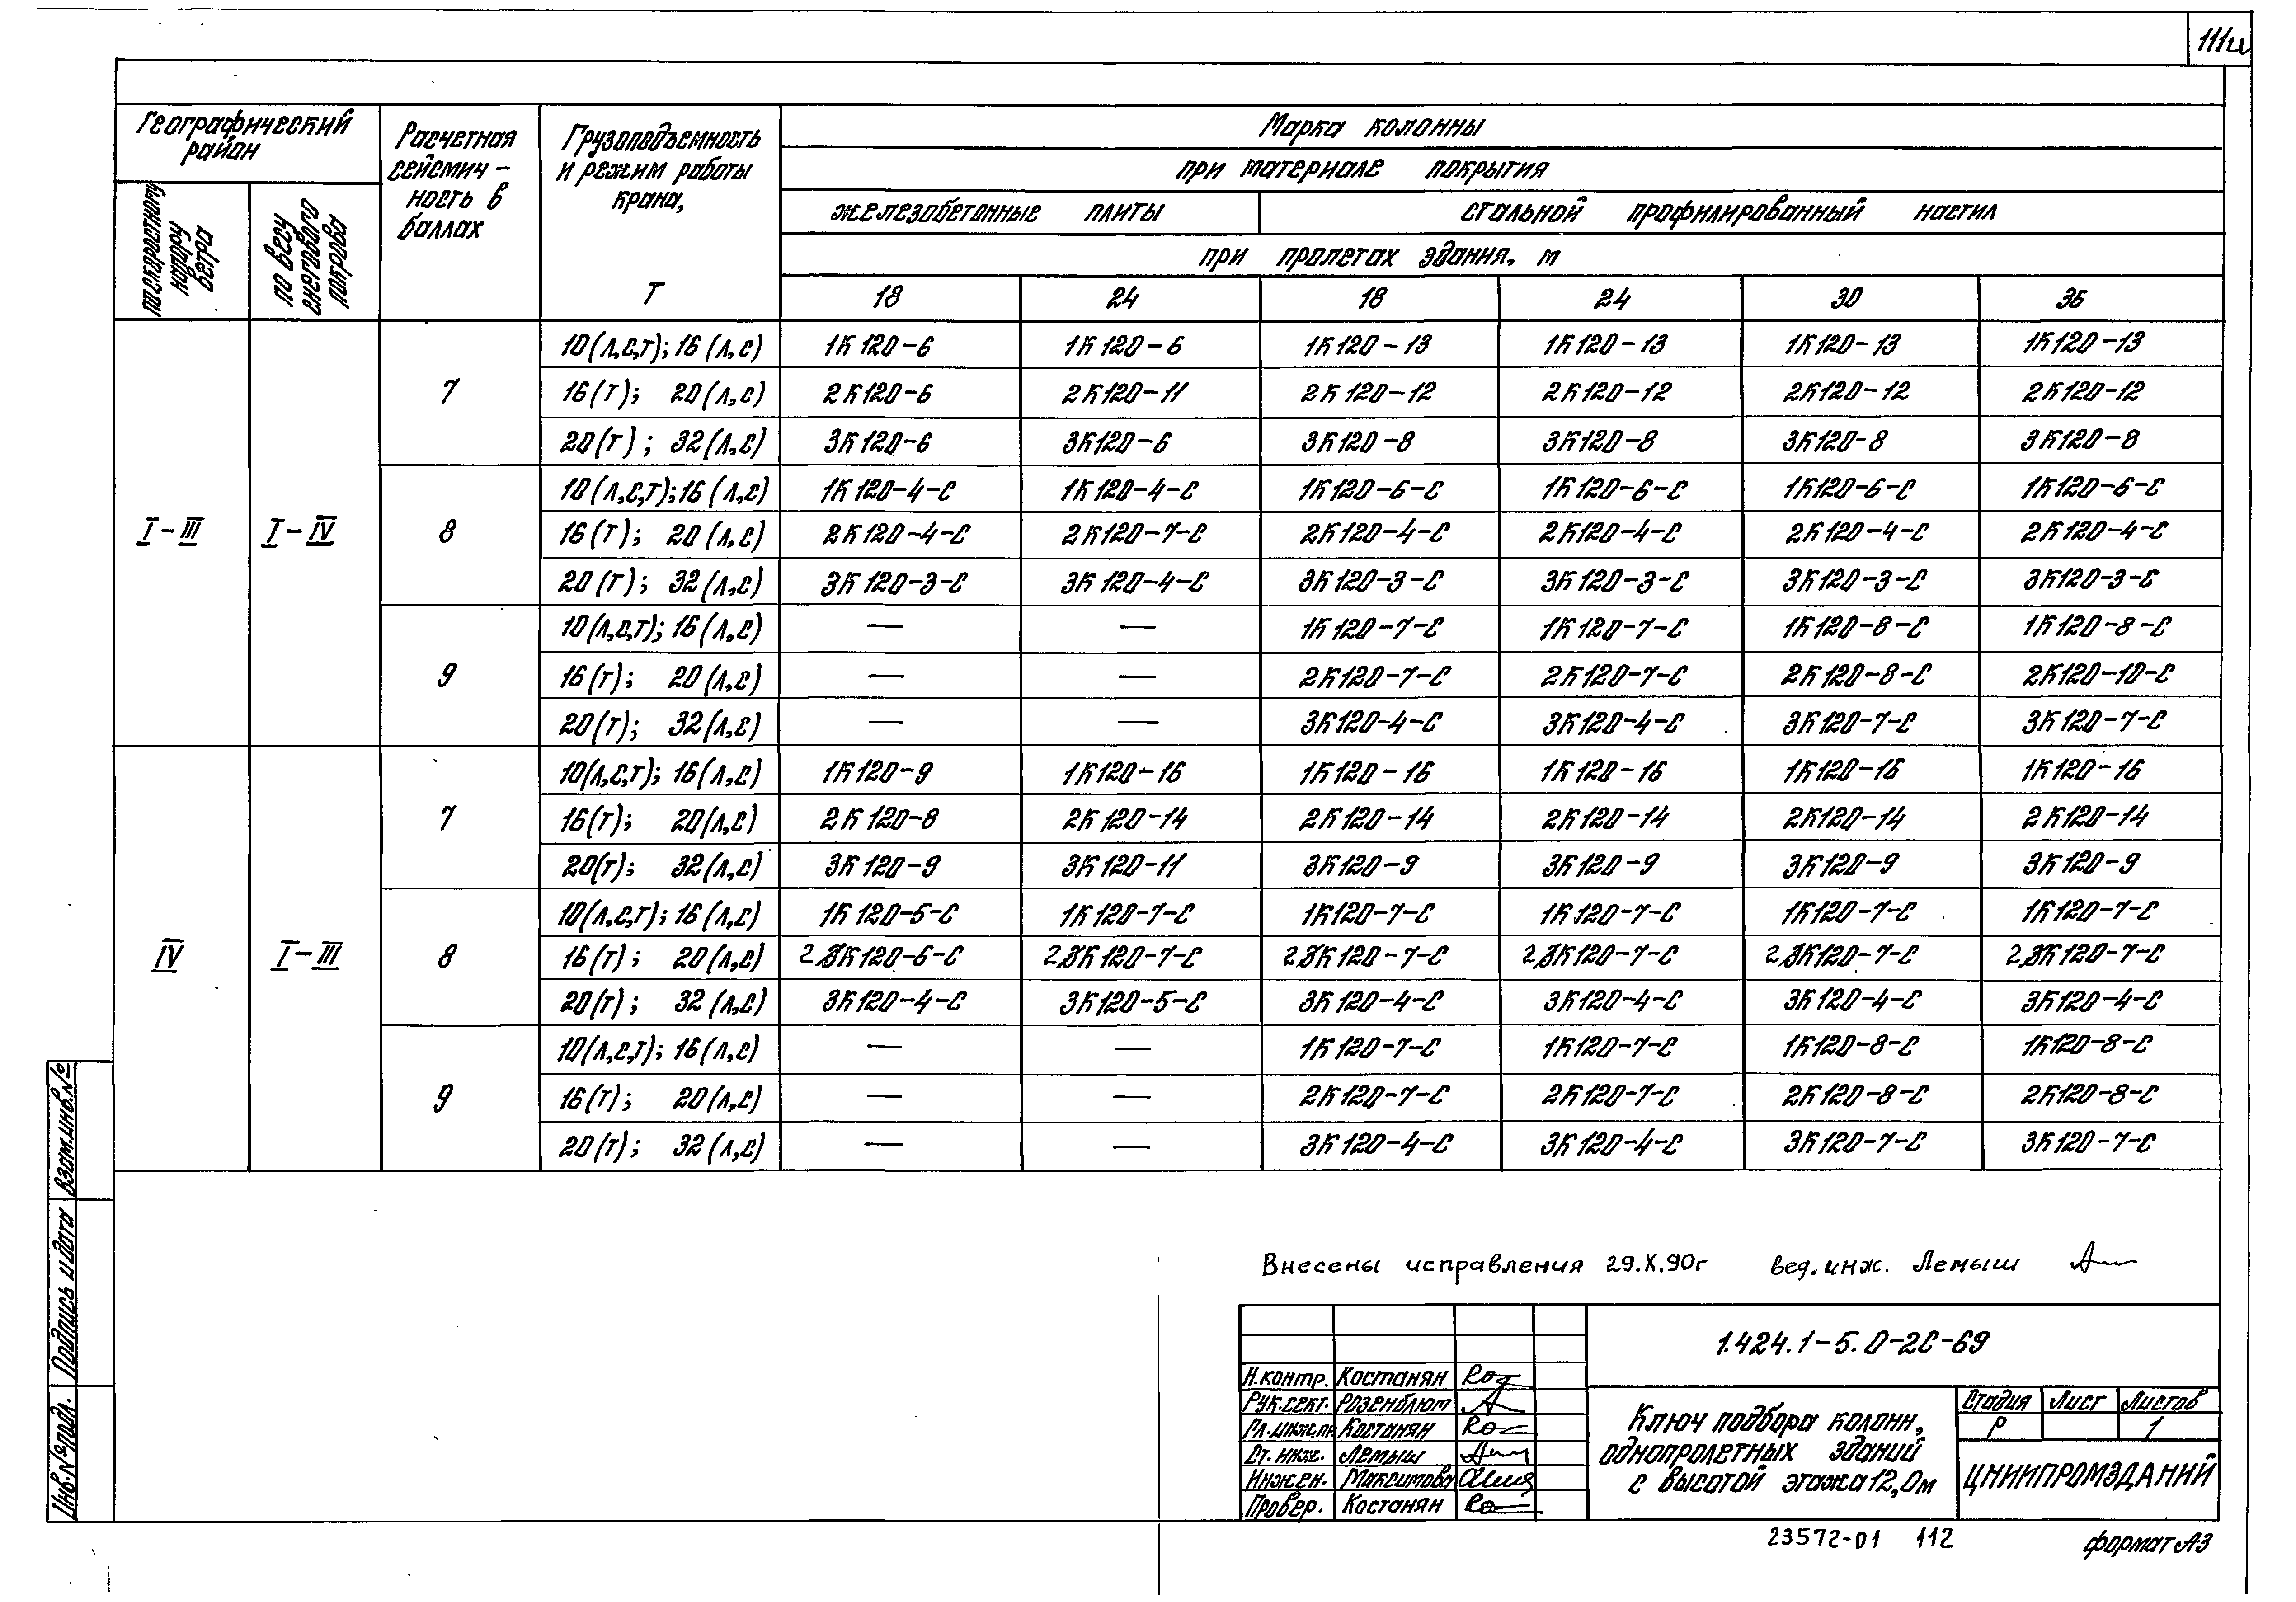 111ц
Географический район
Расчетная сейсмич-ность в баллах
Грузоподъемность и режим работы крана, Т
Марка колонны
при материале покрытия
железобетонные плиты
стальной профилированный настил
при пролетах здания, м
по скоростному напору ветра
по весу снегового покрова
18 24 18 24 30 36
I-III I-IV
7
10(Л,С,Т); 16(Л,С) 1К120-6 1К120-6 1К120-13 1К120-13 1К120-13 1К120-13
16(Т); 20(Л,С) 2К120-6 2К120-11 2К120-12 2К120-12 2К120-12 2К120-12
20(Т); 32(Л,С) 3К120-6 3К120-6 3К120-8 3К120-8 3К120-8 3К120-8
8
10(Л,С,Т); 16(Л,С) 1К120-4-С 1К120-4-С 1К120-6-С 1К120-6-С 1К120-6-С 1К120-6-С
16(Т); 20(Л,С) 2К120-4-С 2К120-7-С 2К120-4-С 2К120-4-С 2К120-4-С 2К120-4-С
20(Т); 32(Л,С) 3К120-3-С 3К120-4-С 3К120-3-С 3К120-3-С 3К120-3-С 3К120-3-С
9
10(Л,С,Т); 16(Л,С) — — 1К120-7-С 1К120-7-С 1К120-8-С 1К120-8-С
16(Т); 20(Л,С) — — 2К120-7-С 2К120-7-С 2К120-8-С 2К120-10-С
20(Т); 32(Л,С) — — 3К120-4-С 3К120-4-С 3К120-7-С 3К120-7-С
IV I-III
7
10(Л,С,Т); 16(Л,С) 1К120-9 1К120-16 1К120-16 1К120-16 1К120-16 1К120-16
16(Т); 20(Л,С) 2К120-8 2К120-14 2К120-14 2К120-14 2К120-14 2К120-14
20(Т); 32(Л,С) 3К120-9 3К120-11 3К120-9 3К120-9 3К120-9 3К120-9
8
10(Л,С,Т); 16(Л,С) 1К120-5-С 1К120-7-С 1К120-7-С 1К120-7-С 1К120-7-С 1К120-7-С
16(Т); 20(Л,С) 2К120-6-С 2К120-7-С 2К120-7-С 2К120-7-С 2К120-7-С 2К120-7-С
20(Т); 32(Л,С) 3К120-4-С 3К120-5-С 3К120-4-С 3К120-4-С 3К120-4-С 3К120-4-С
9
10(Л,С,Т); 16(Л,С) — — 1К120-7-С 1К120-7-С 1К120-8-С 1К120-8-С
16(Т); 20(Л,С) — — 2К120-7-С 2К120-7-С 2К120-8-С 2К120-8-С
20(Т); 32(Л,С) — — 3К120-4-С 3К120-4-С 3К120-7-С 3К120-7-С
Внесены исправления 29.X.90г вед.инж. Лемыш
1.424.1-5.0-2С-69
Н.контр. Костанян
Рук.сект. Розенблюм
Гл.инж.пр. Костанян
Ст. инж. Лемыш
Инжен. Максимова
Провер. Костанян
Ключ подбора колонн,
однопролетных зданий
с высотой этажа 12,0м
Стадия Лист Листов
Р 1
ЦНИИПРОМЗДАНИЙ
23572-01 112
формат А3
Инв.№ подл. Подпись и дата Взам.инв.№